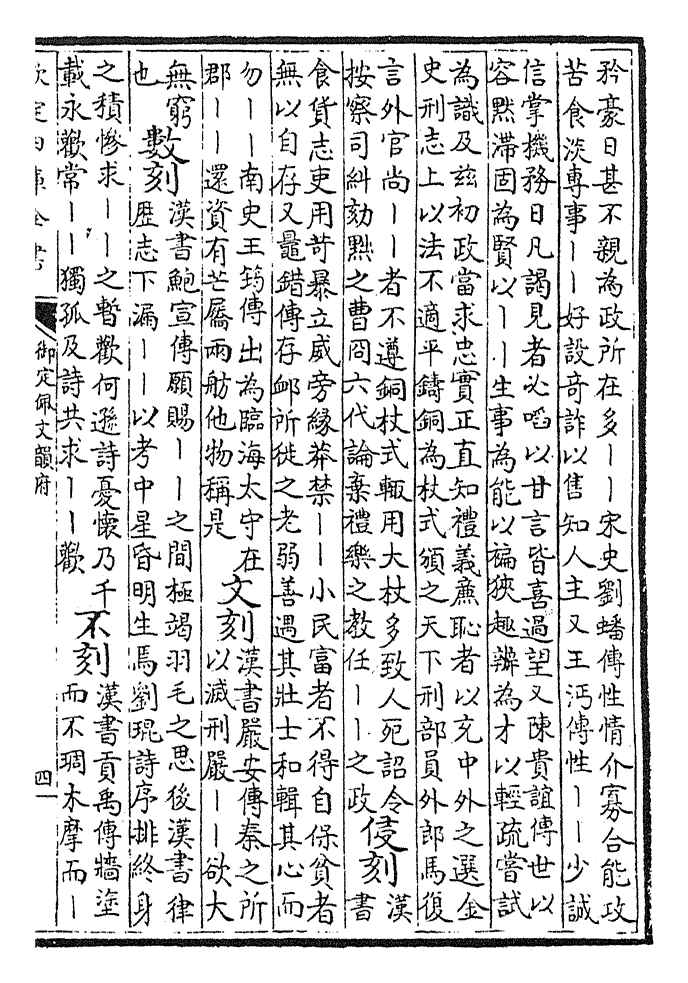 矜豪日甚不親為政所在多丨丨宋史劉蟠傳性情介寡合能攻
苦食淡専事丨丨好設奇詐以售知人主又王沔傳性丨丨少誠
信掌機務日凡謁見者必㗖以甘言皆喜過望又陳貴誼傳世以
容黙滯固為賢以丨丨生事為能以褊狹趣辦為才以輕疏嘗試
為識及兹初政當求忠實正直知禮義㢘恥者以充中外之選金
史刑志上以法不適平鑄銅為杖式頒之天下刑部員外郎馬復
言外官尚丨丨者不遵銅杖式輙用大杖多致人死詔令
按察司糾劾黜之曹冏六代論棄禮樂之教任丨丨之政
侵刻
漢
書
食貨志吏用苛暴立威旁緣莽禁丨丨小民富者不得自保貧者
無以自存又鼂錯傳存卹所徙之老弱善遇其壯士和輯其心而
勿丨丨南史王筠傳出為臨海太守在
郡丨丨還資有芒屩兩舫他物稱是
文刻
漢書嚴安傳秦之所
以滅刑嚴丨丨欲大
無窮
也
數刻
漢書鮑宣傳願賜丨丨之間極竭羽毛之思後漢書律
歴志下漏丨丨以考中星昏明生焉劉琨詩序排終身
之積慘求丨丨之暫歡何遜詩憂懷乃千
載永歡常丨丨獨孤及詩共求丨丨歡
不刻
漢書貢禹傳牆塗
而不琱木摩而丨
欽定四庫全書
御定佩文韻府
四